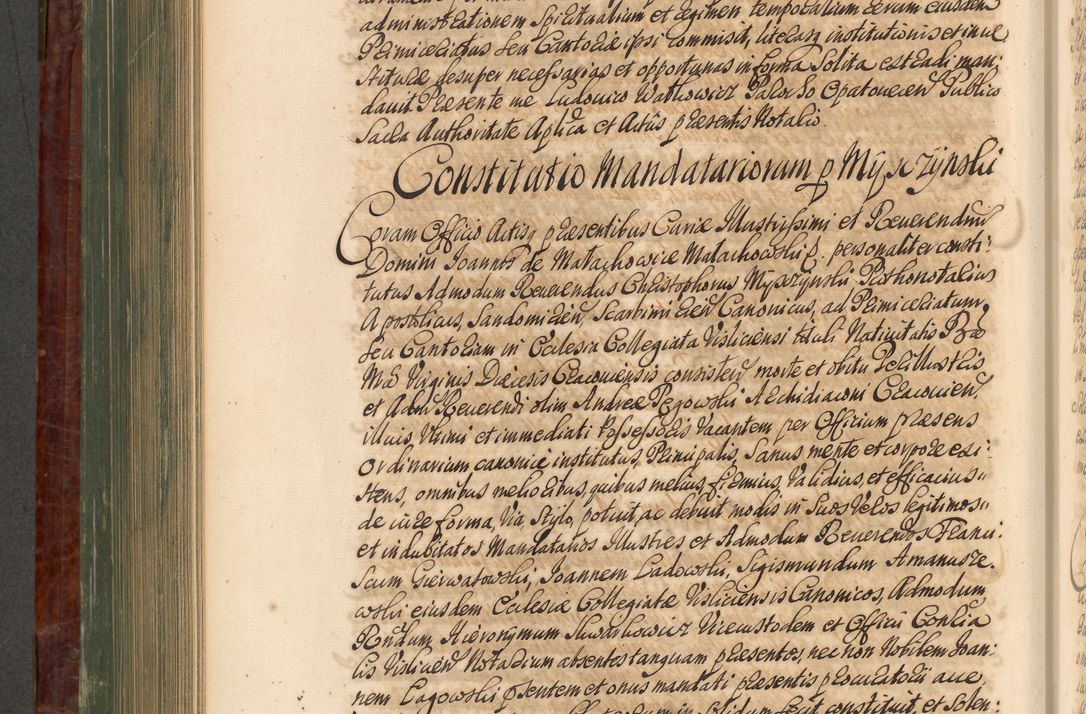 administrationem Spiritualium et regimen temporalium rerum eiusdem
Primiceriatus seu Cantoriæ ipsi Commisit, literasq institutionis et inve
stituræ desuper necessarias et opportunas in forma Solita extradi man:
davit. Præsente me Ludovico Wathowicz Palcr So Opatovecen Publico
Sacra Authoritate Aplica et Actus præsentis Notario.
Constitutio Mandatariorum p Myszÿnski
Coram Officio Actisq præsentibus Curiæ Illustrissimi et Reverendmi
Domini Joannis de Małachowice Małachowski E. personaliter consti:
tutus Admodum Reverendus Christophorus Myszÿnski Prothonotarius
Apostolicus, Sandomirien, Scarbimirien Canonicus, ad Primiceriatum,
seu Cantoriam in Ecclesia Collegiata Visliciensi tituli Nativitatis Bæ
Mæ Virginis Diæcesis Cracoviensis consisten morte et obitu Perillustris
et Adm Reverendi olim Andreæ Pęgowski Archidiaconi Cracovien,
illius, Ultimi et immediati Possessoris vacantem per Officium præsens
Ordinarium canonicè institutus, Principalis, Sanus mente et corpore exi:
stens, omnibus melioribus, quibus melius, firmius, Validius, et efficacius
de iure forma, Via, Stylo, potuit ac debuit modis in Suos Veros legitimos
et indubitatos Mandatarios Illustres et Admodum Reverendos Franci:
scum Gierwatowski, Joannem Ladowski, Sigismundum Amanusze.
wski eiusdem Ecclesiæ Collegiatæ Visliciensis Canonicos, Admodum
Rndum Hieronymum Skwarkowicz Vicecustodem et Officii Consia
lis Vislicien Notarium absentes tanquam præsentes, nec non Nobilem Joan:
nem Łagowski psentem et onus mandati præsentis procuratorii
in Solidum fecit, constituit, et Solen: